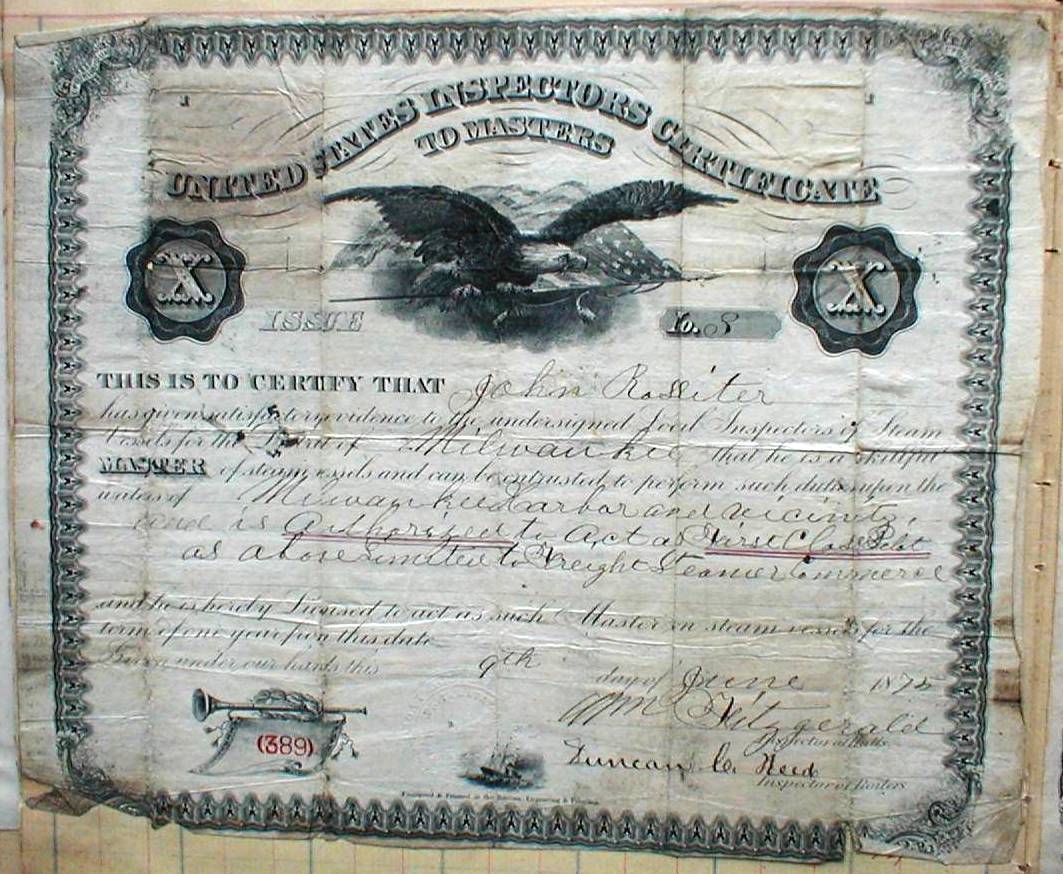 UNITED STATES INSPECTORS CERTIFICATE
TO MASTERS
X
X
ISSUE
No. 8
THIS IS TO CERTIFY THAT John Rossiter
has given satisfactory evidence to the undersigned Local Inspectors of Steam
Vessels for the District of Milwaukee that he is a skillful
MASTER of steam vessels and can be entrusted to perform such duties upon the
waters of Milwaukee Harbor and vicinity,
and is Authorized to Act as First Class Pilot
as above limited to Freight Steamer Commerce
and he is hereby Licensed to act as such Master on steam vessels for the
term of one year from this date
Given under our hands this 9th day of June 1875
Wm Fitzgerald
Inspector of Hulls
(389)
Duncan C. Reed
Inspector of Boilers
Engraved & Printed at the Bureau, Engraving & Printing.